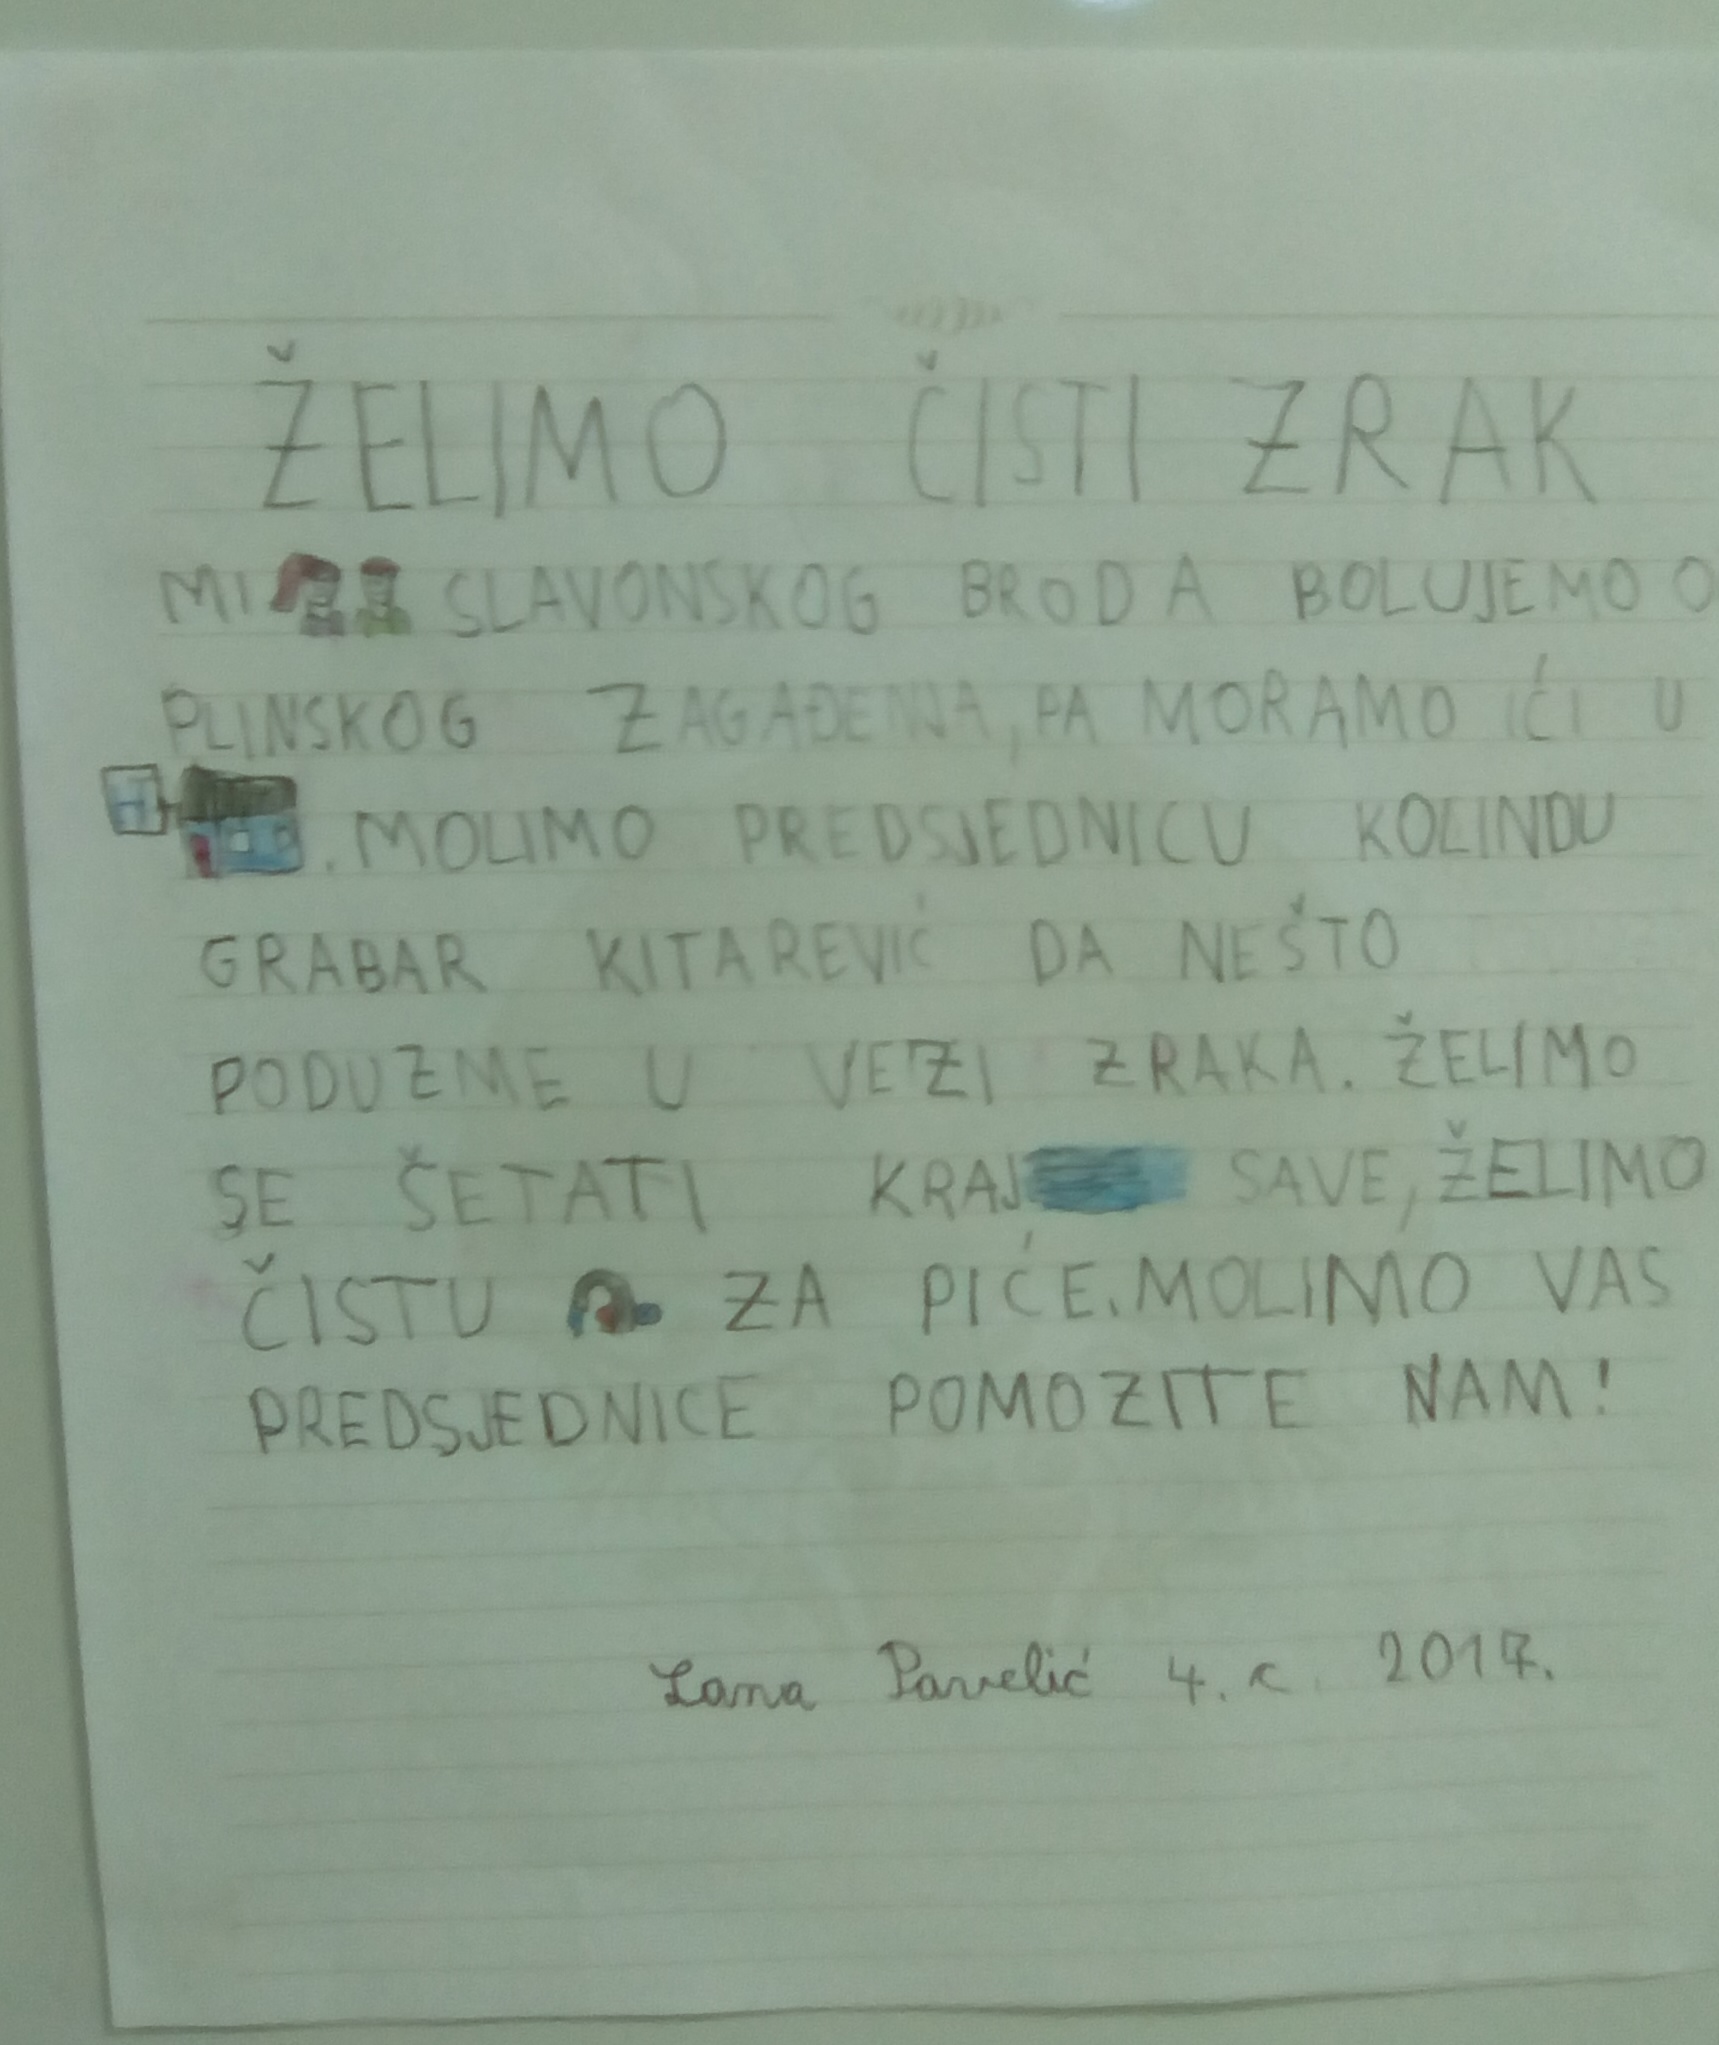 ŽELIMO ČISTI ZRAK
MI SLAVONSKOG BRODA BOLUJEMO O
PLINSKOG ZAGAĐENJA, PA MORAMO IĆI U
H . MOLIMO PREDSJEDNICU KOLINDU
GRABAR KITAREVIĆ DA NEŠTO
PODUZME U VEZI ZRAKA. ŽELIMO
SE ŠETATI KRAJ SAVE, ŽELIMO
ČISTU ZA PIĆE. MOLIMO VAS
PREDSJEDNICE POMOZITE NAM!
Lana Pavelić 4. c. 2017.